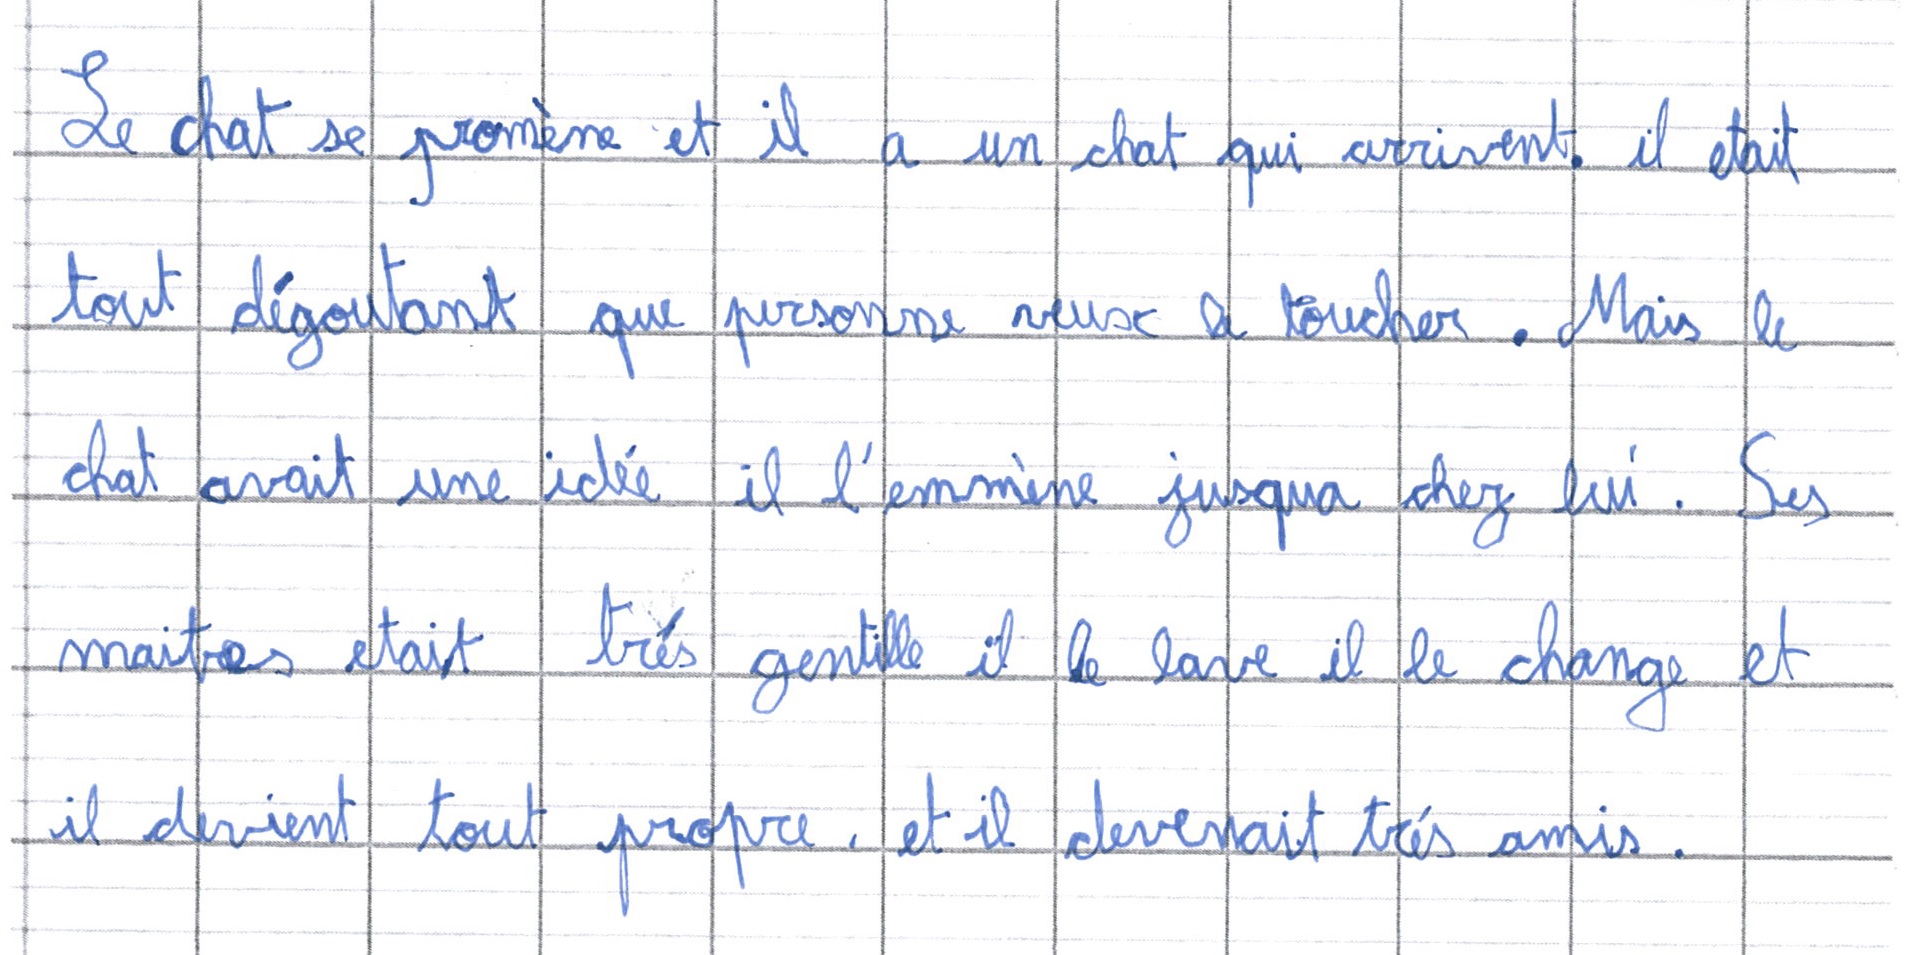 Le chat se promène et il a un chat qui arrivent. il etait
tout dégoutant que personne veux le toucher. Mais le
chat avait une idée il l'emmène jusqua chez lui. Ses
maitres etait trés gentille il le lave il le change et
il devient tout propre. et il devenait trés amis.